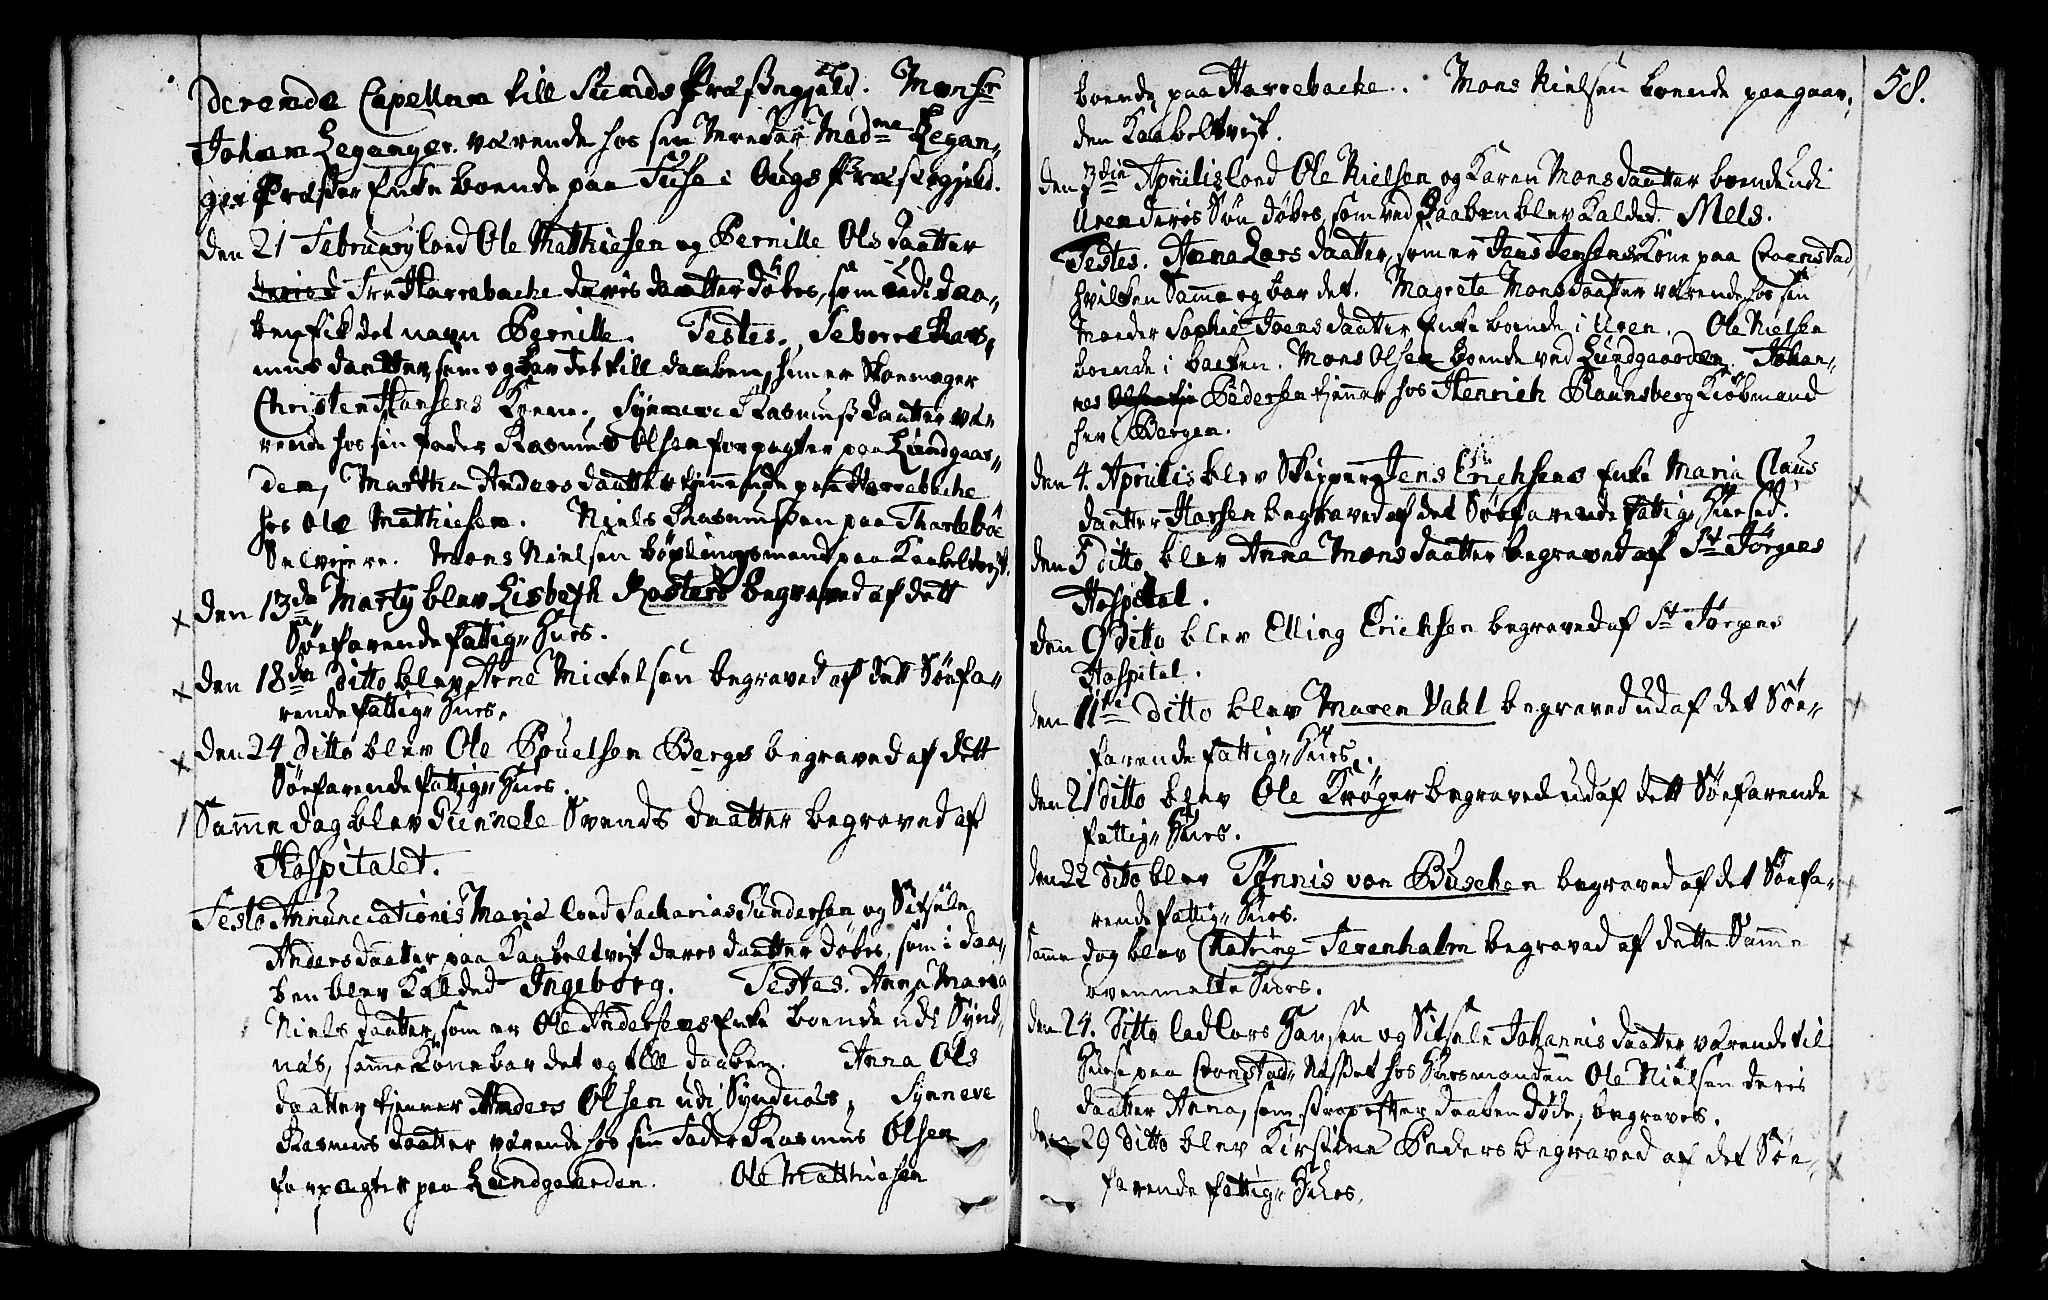 derende Capellan till Sunds Præstegjeld. Monsr
Johan Leganger. værende hos sin Moeder Madme Legan-
ger Præste Enke boende paa Tuse i Ougs Præstegjeld.
den 21 February lood Ole Mathiesen og Pernille Ols daatter
fra Harrebacke deris daatter døbes, som udi daa-
ben fik det nafn Pernille. Testes. Seborre Ras-
mus daatter, som og bar det till daaben, hun er Skoemager
Christen Hansens Kone. Synneve Rasmus daatter væ-
rende hos sin fader Rasmus Olsen forpagter paa Lundgaar-
den, Martha Anders daatter tjennende paa Harrebacke
hos Ole Mathiesen. Niels Rasmussen paa Thartebøe
Selvejere. Mons Nielsen bøxlingsmand paa Kaabeltvejt.
den 13de Marty blev Lisbeth Rosters begraved af dett
Søefarende fattig-Huus.
den 18den ditto blev Arne Mickelsen begraved af dett Søefa-
rende fattig-Huus.
den 24 ditto blev Ole Pouelsen Berge begraved af dett
Søefarende fattig-Huus.
Samme dag blev Gunnele Svends daatter begraved af
Hospitalet.
Festo Annunciationis Mariæ lood Sacharias Gundersen og Sitsele
Anders daatter paa Kaabeltvejt deres daatter døbes, som i daa-
ben blev kalded Ingeborg. Testes. Anna Maria
Niels daatter, som er Ole Andersens Enke boende udi Synd-
nas, samme Kone bar det og till daaben. Anna Ols
daatter tjenner Anders Olsen udi Syndnas. Synneve
Rasmus daatter værende hos sin Fader Rasmus Olsen
forpagter paa Lundgaarden. Ole Matthiesen
58.
boende paa Harrebacke. Mons Nielsen boende paa gaar-
den Kaabeltvejt.
den 3die Aprilis lood Ole Nielsen og Karen Mons daatter boende udi
Uren deris Søn døbes, som ved Daaben blev kalded. Mels.
Testes. Anna Lars daatter, som er Jens Jensens Kone paa Cronstad,
hvilken Samme og bar det. Magrete Mons daatter værende hos sin
moeder Sophie Joens daatter Enke boende i Uren. Ole Nielsen
boende i backen. Mons Olsen boende ved Lundgaarden. Johan-
nes Pedersen tjenner hos Henrich Raunsberg Kiøbmand
her i Bergen.
den 4. Aprilis blev Skipper Jens Erichsens Enke Maria Claus
daatter Harsen begraved af det Søefarende fattig-Huused.
den 5 ditto blev Anna Mons daatter begraved af St Jørgens
Hospital.
den 9 ditto blev Elling Erichsen begraved af St Jørgens
Hospital.
den 11te ditto blev Maren Vahl begraved ud af det Søe-
farende fattig-Huus.
den 21 ditto blev Ole Krøger begraved ud af dett Søefarende
fattig-Huus.
den 22 ditto blev Tønnis von Buschen begraved af det Søefa-
rende fattig-Huus.
Samme dag blev Chatrine Terenholm begraved af dette Samme
ovenmelte Huus.
den 24. ditto lod Lars Hansen og Sitsele Johannis daatter værende til
Huuse paa Cronstad-Næsset hos Huusmanden Ole Nielsen deris
daatter Anna, som strax efter daaben døde, begraves.
den 29 ditto blev Kirstine Peders begraved af det Søe-
farende fattig-Huus.